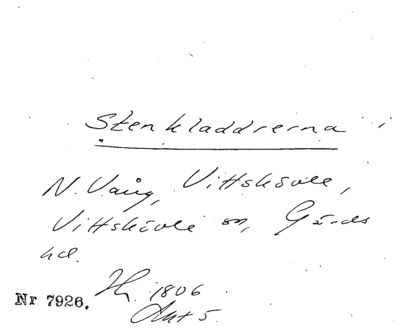 Stenkladdrerna
N. Vång, Vittskövle,
Vittskövle sn, Gärds
hd.
Nr 7926.
1806
Akt 5